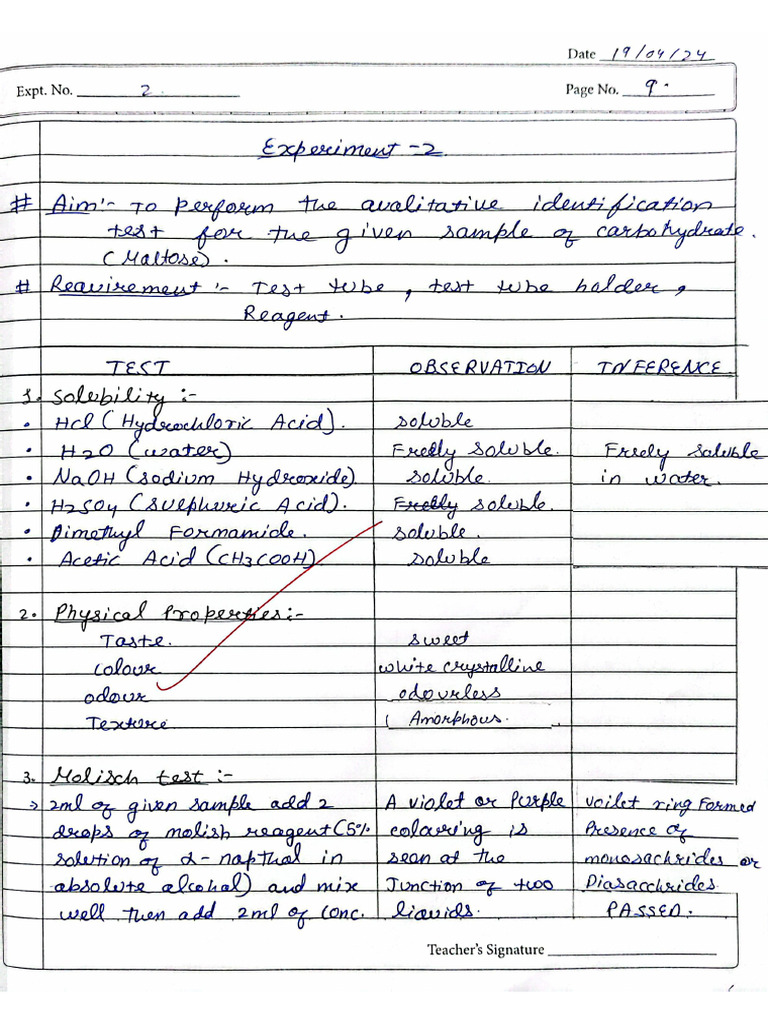 Date 19/04/24
Expt. No. 2.
Page No. 9.
Experiment - 2
# Aim :- To perform the qualitative identification
test for the given sample of carbohydrate.
(Maltose).
# Requirement :- Test tube, test tube holder,
Reagent.
TEST OBSERVATION INFERENCE
1. Solubility :-
• Hcl (Hydrochloric Acid). soluble
• H2O (water) Freely soluble. Freely soluble
• NaOH (sodium Hydroxide). soluble. in water.
• H2SO4 (Sulphuric Acid). Freely soluble.
• Dimethyl Formamide. soluble.
• Acetic Acid (CH3COOH) soluble
2. Physical Properties:-
Taste. sweet
colour white crystalline
odour odourless
Texture Amorphous.
3. Molisch test :-
→ 2ml of given sample add 2 A violet or Purple voilet ring Formed
drops of molish reagent (5% colouring is Presence of
solution of α- napthal in sean at the monosachrides or
absolute alcohal) and mix Junction of two Diasacchrides.
well then add 2ml of conc. liquids. PASSED.
Teacher's Signature